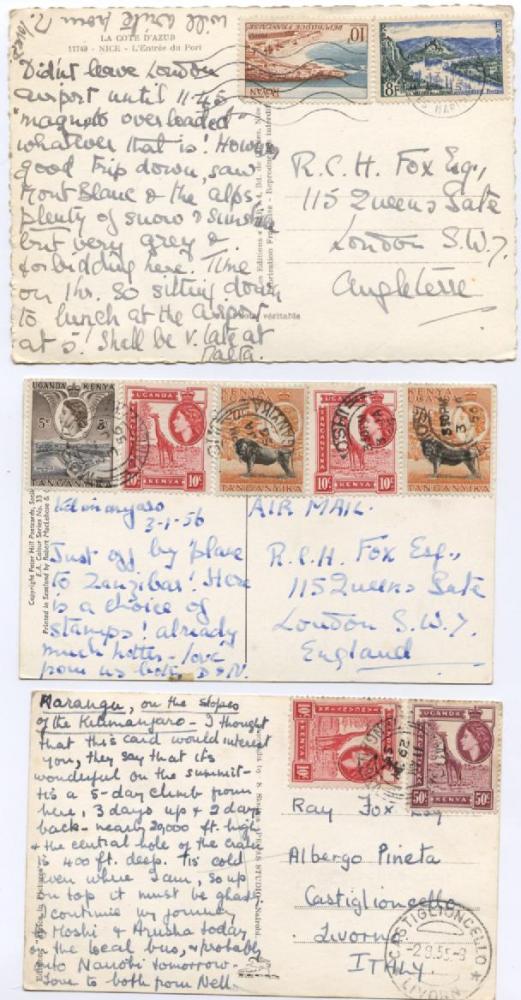 will write from
LA COTE D'AZUR
11749 - NICE - L'Entrée du Port
Didn't leave London
airport until 11.45
"magneto overloaded"
whatever that is! However
good trip down, saw
Mont Blanc & the alps,
plenty of snow & sunshine
but very grey &
forbidding here. Time
on 1 hr. so sitting down
to lunch at the airport
at 5! Shall be v. late at
Malta.
REPUBLIQUE FRANÇAISE
10F
ROYAN
8F
R.C.H. Fox Esq.,
115 Queens Gate
London S.W.7.
Angleterre
UGANDA KENYA
5c
TANGANYIKA
UGANDA
10c
KENYA
TANGANYIKA
UGANDA
10c
KENYA
TANGANYIKA
Copyright Peter Hill Postcards,
E.A. Colour Series No. 33
Printed in Scotland by Robert MacLehose &
Kilimanjaro
3-1-56
Just off by plane
to Zanzibar! Here
is a choice of
stamps! already
much hotter - love
from us both D & N.
AIR MAIL.
R.C.H. Fox Esq.,
115 Queens Gate
London S.W.7.
England
Marangu, on the slopes
of the Kilimanjaro - I thought
that this card would interest
you, they say that it's
wonderful on the summit -
tis a 5-day climb from
here, 3 days up & 2 days
back - nearly 20,000 ft. high
& the central hole of the crater
is 400 ft. deep. Tis cold
even where I am, so up
on top it must be ghastly
I continue my journey
to Moshi & Arusha today
& the local bus, & probably
into Nairobi tomorrow -
Love to both from Nell -
10c
UGANDA
50c 50c
KENYA
Ray Fox Esq
Albergo Pineta
Castiglioncello
Livorno
ITALY
CASTIGLIONCELLO
-2.9.55-9
LIVORNO